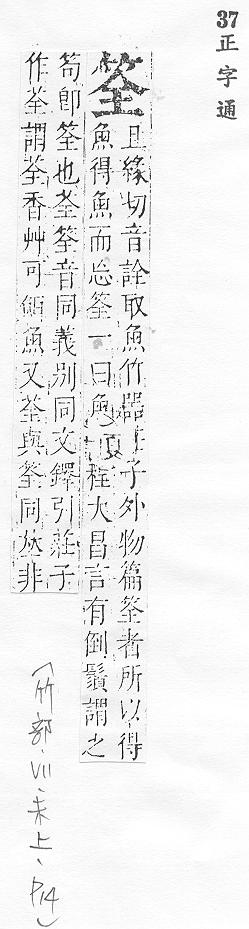 37
正字通
筌
且緣切音詮取魚竹器莊子外物篇筌者所以得
魚得魚而忘筌一曰魚笱程大昌言有倒鬚謂之
笱卽筌也荃筌音同義別同文鐸引莊子
作荃謂荃香艸可餌魚又荃與筌同𠀤非
(竹部·VII·未上·P14)